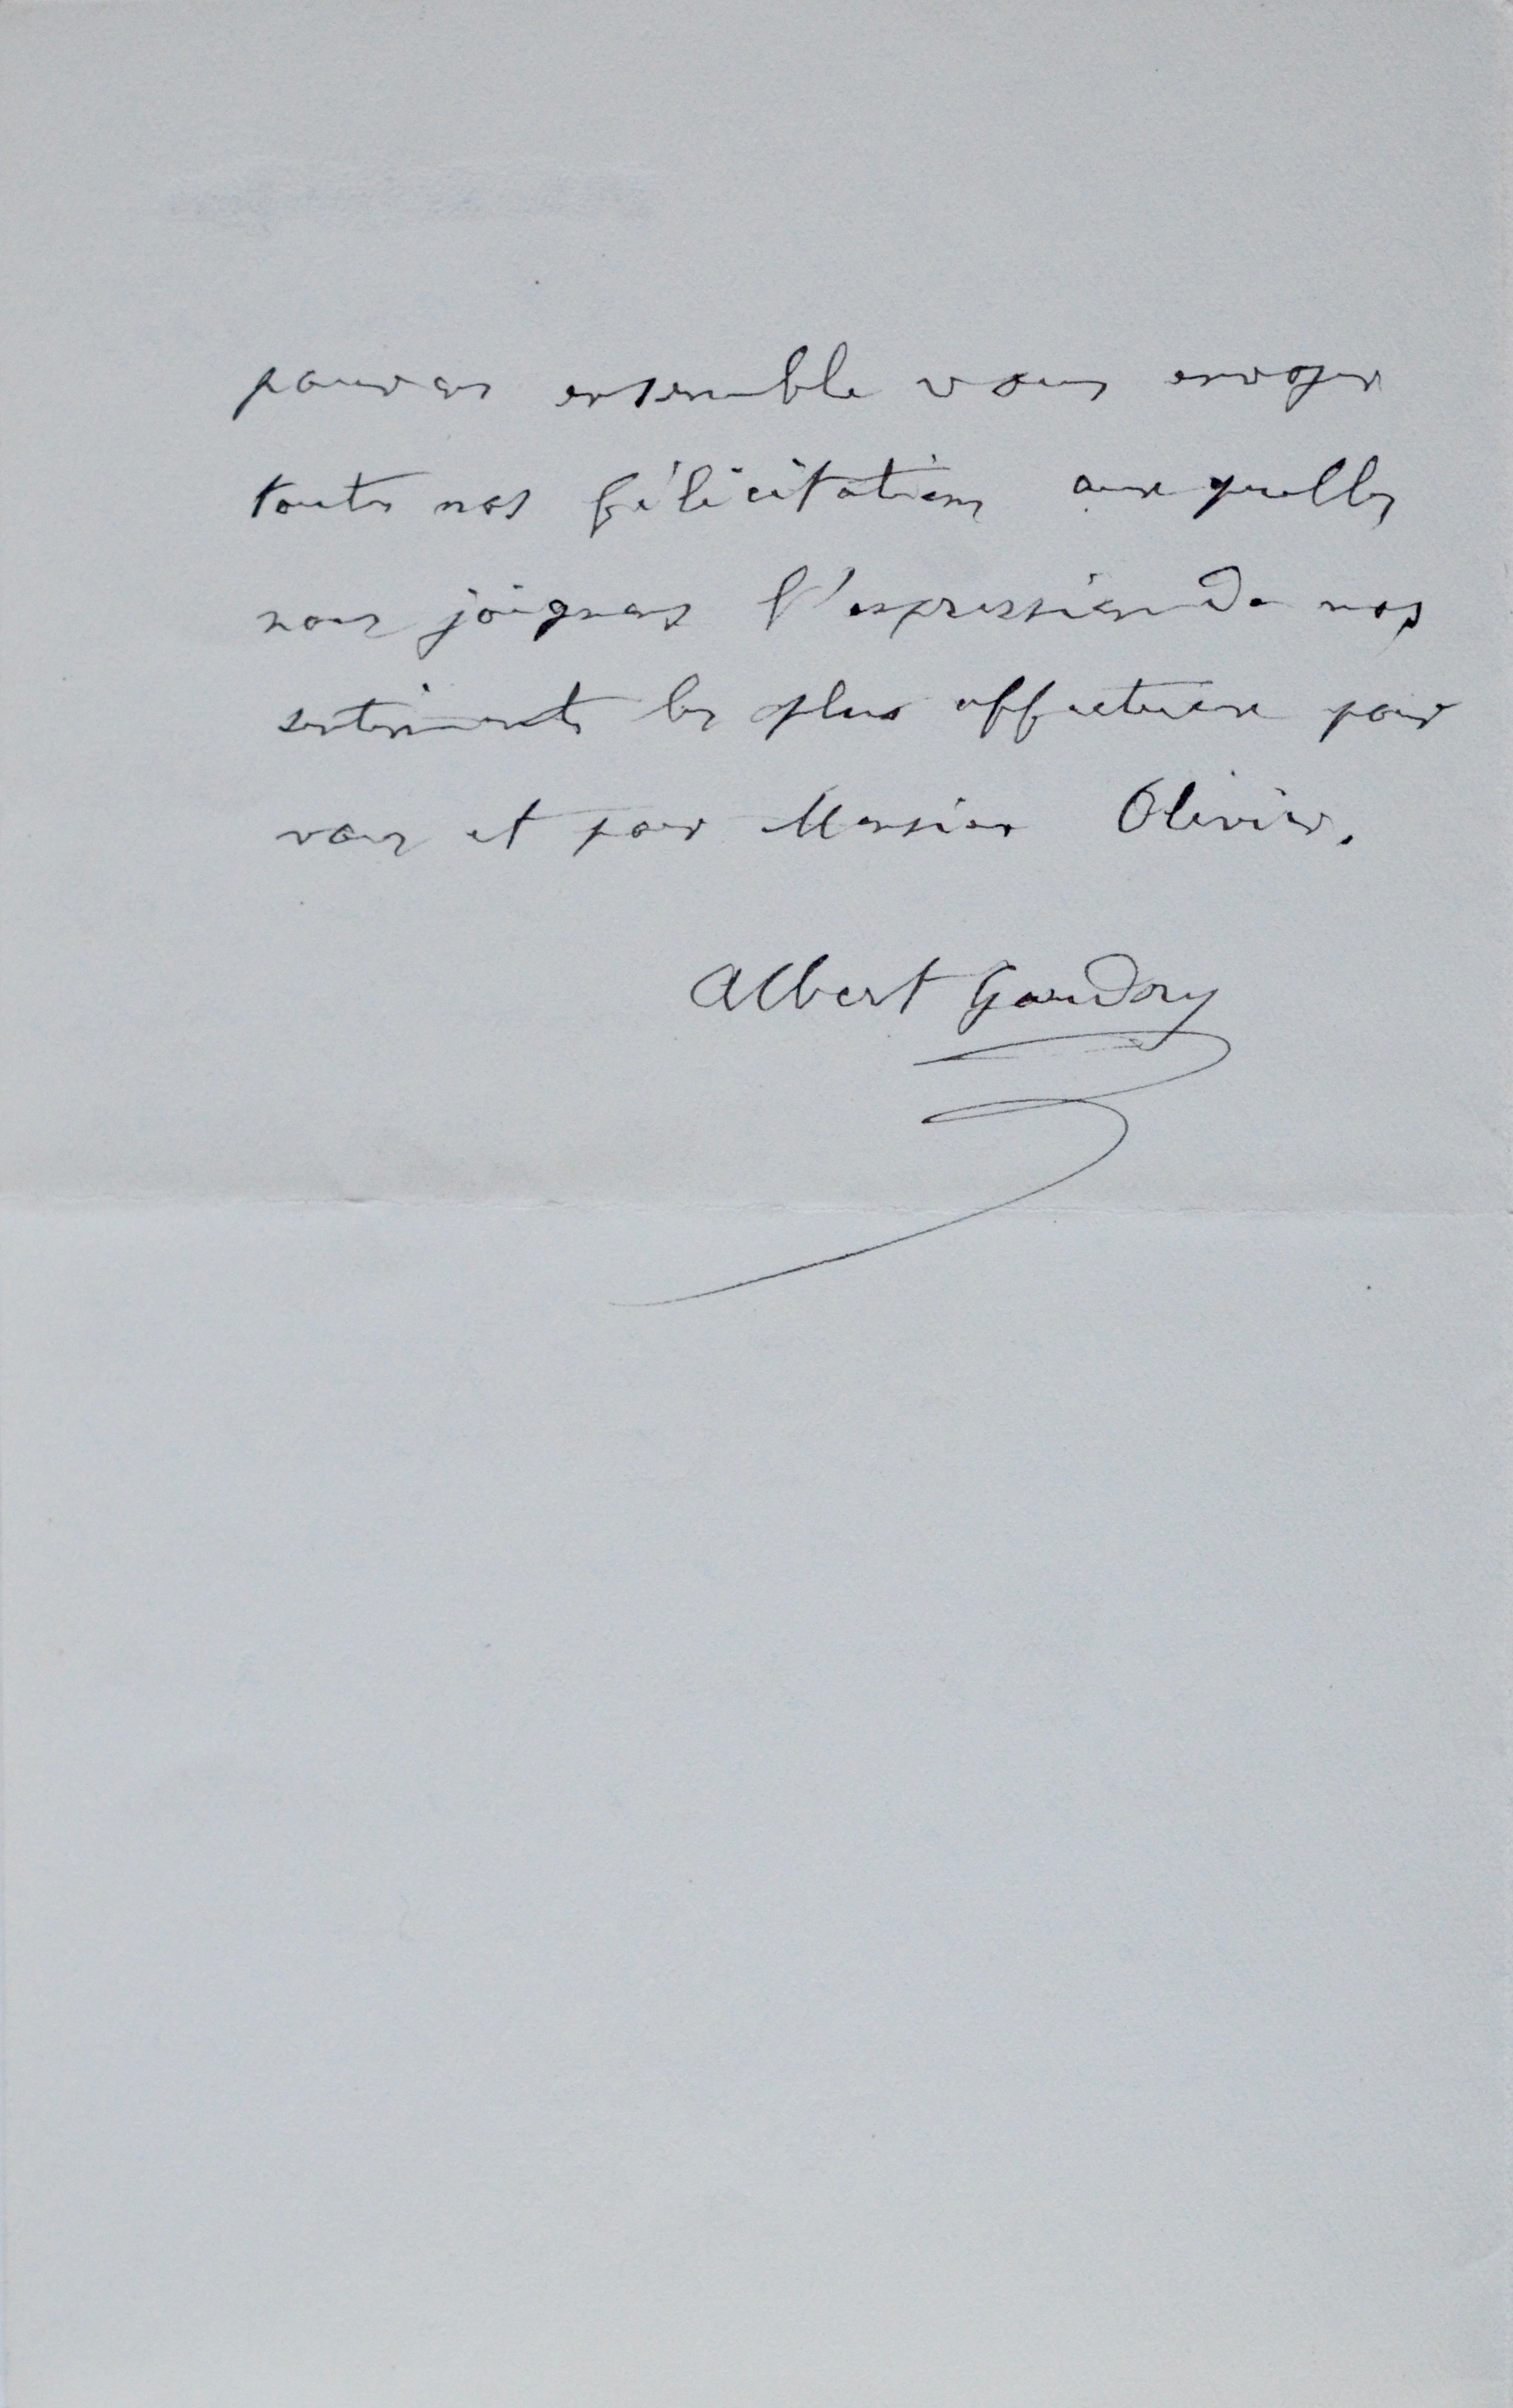 pouvons ensemble vous envoyer
toutes nos félicitations auxquelles
nous joignons l'expression de nos
sentiments les plus affectueux pour
vous et pour Monsieur Olivier.
Albert Gaudry